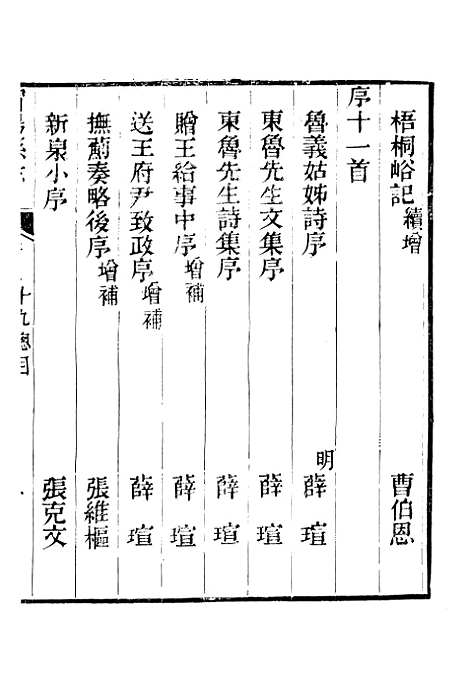 梧桐峪記 續增 曹伯恩
序十一首
魯義姑姊詩序 明 薛瑄
東魯先生文集序 薛瑄
東魯先生詩集序 薛瑄
贈王給事中序 增補 薛瑄
送王府尹致政序 增補 薛瑄
撫薊奏略後序 增補 張維樞
新泉小序 張克文
十九總目